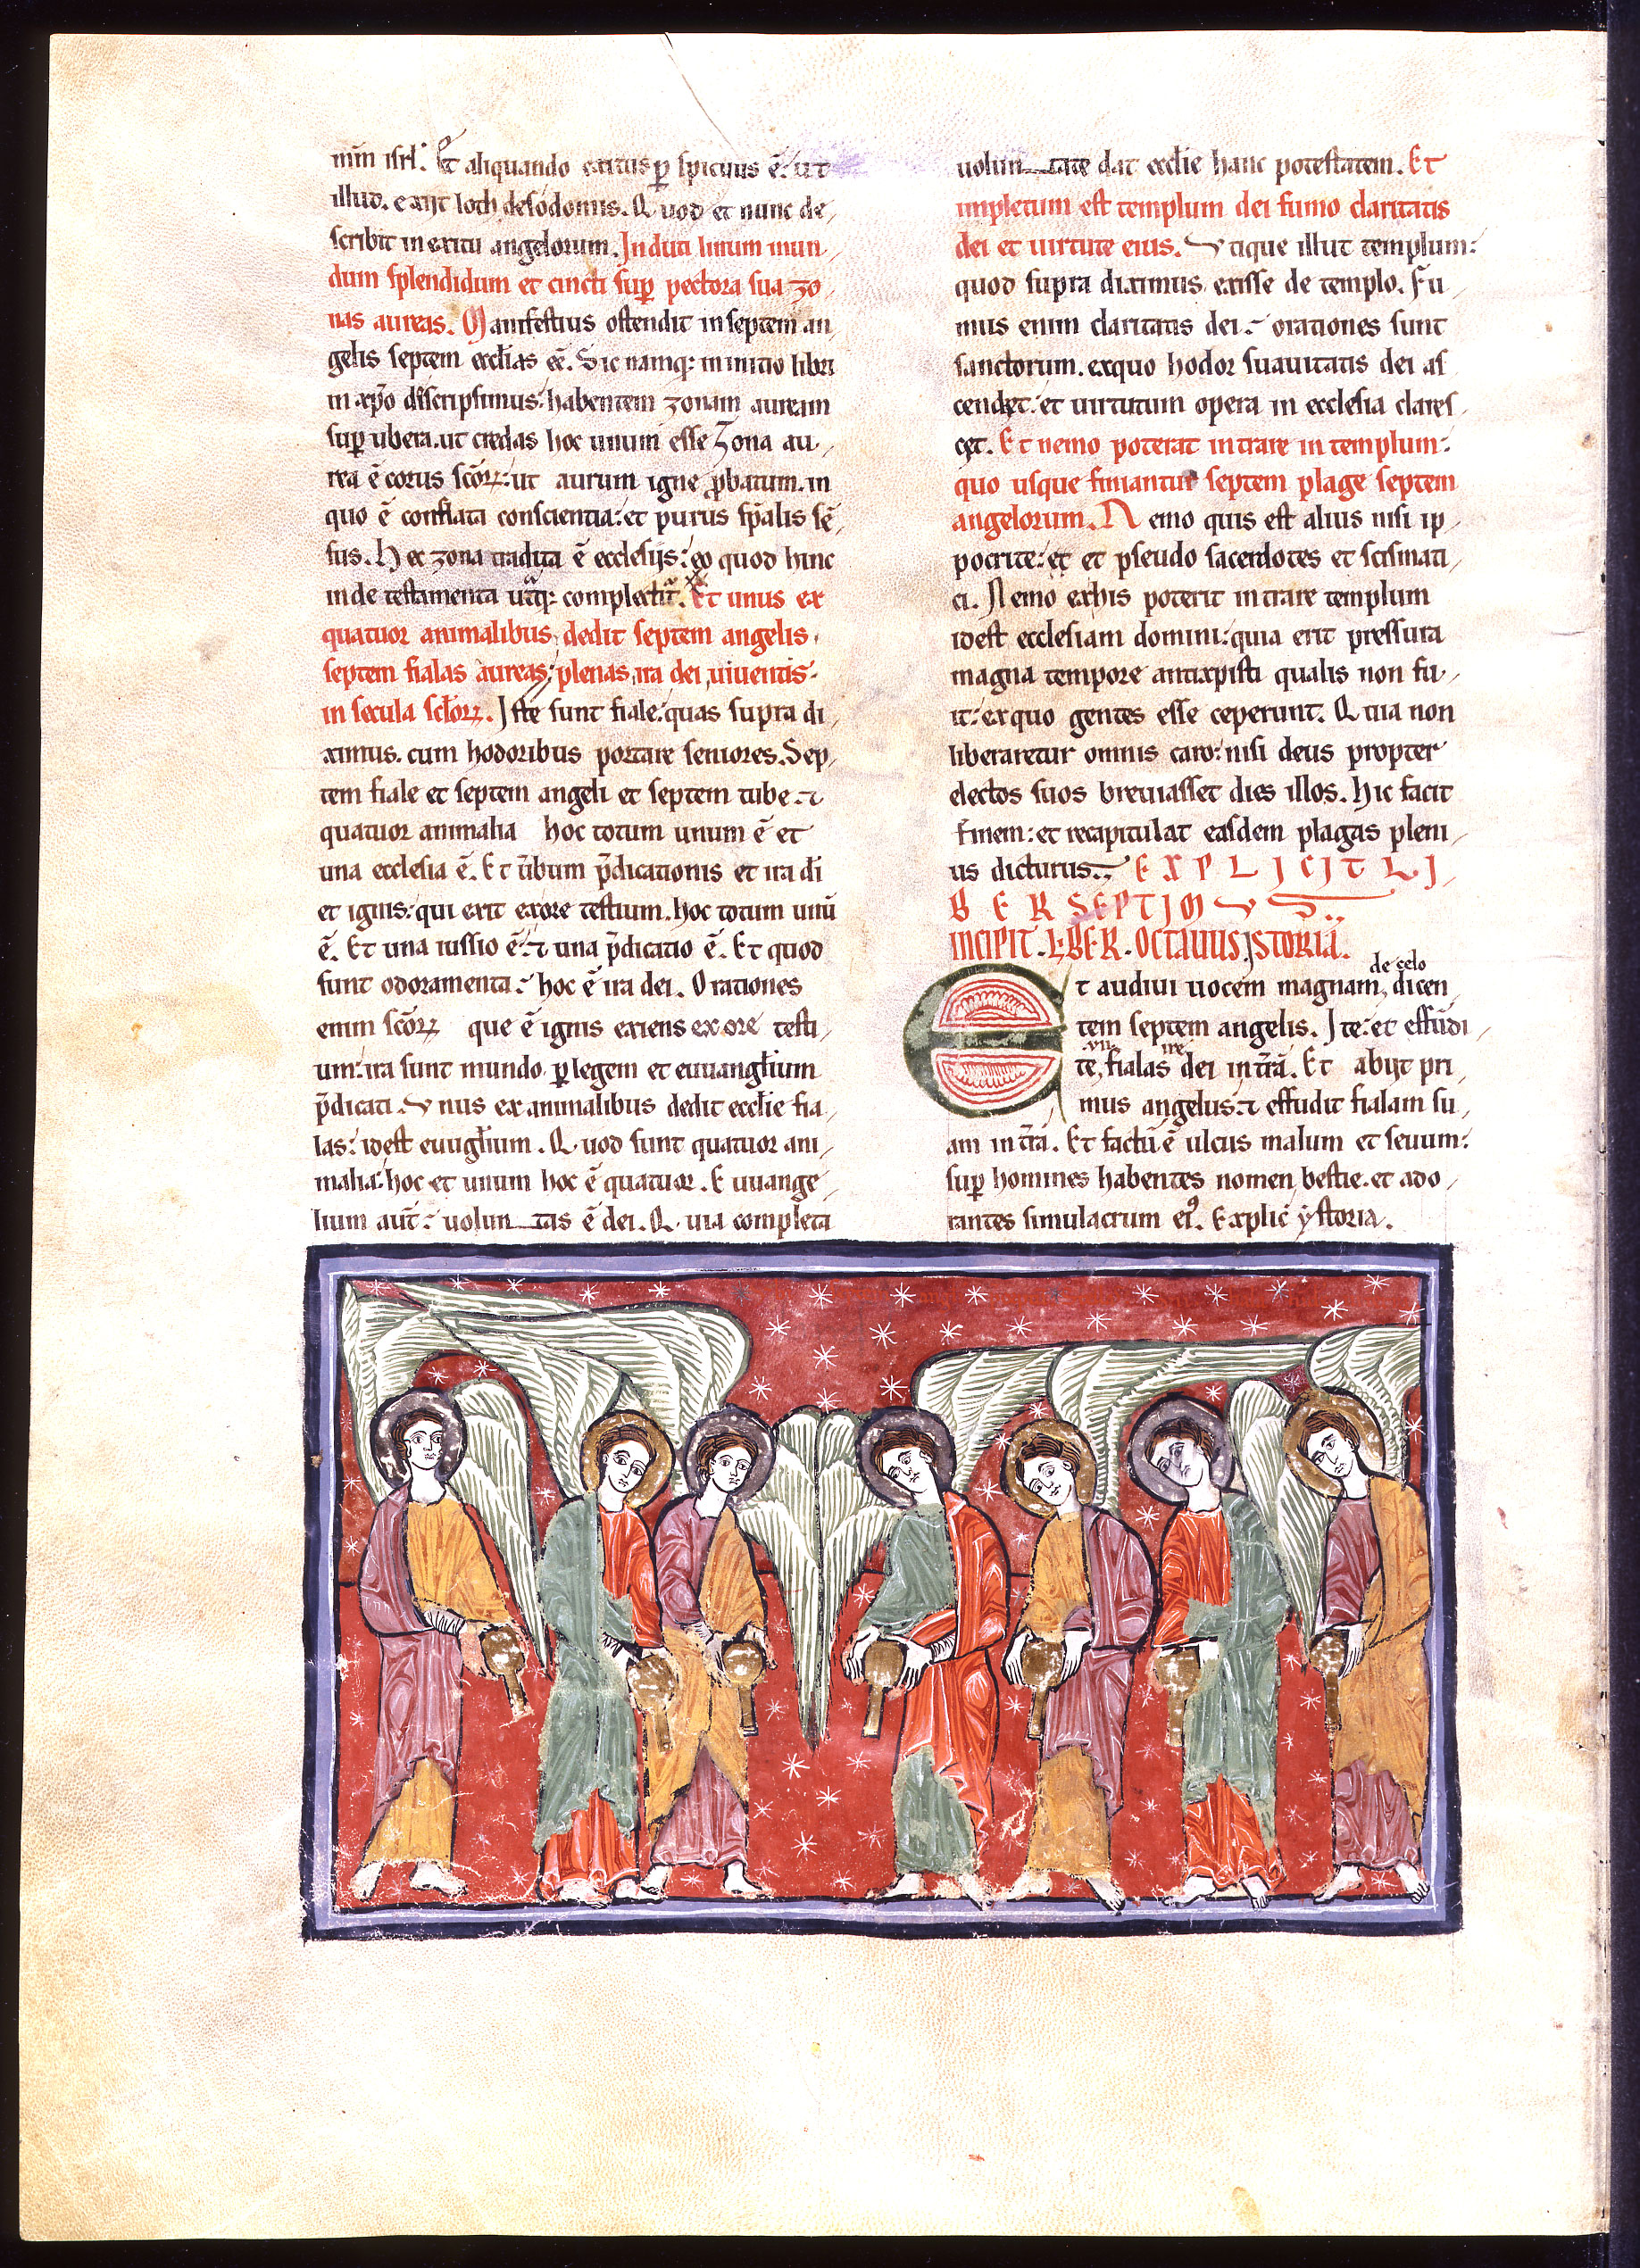 min isrl̄. Et aliquando exitus p̱spicuus ē. ut
illud. exiit loth de sodomis. Quod et nunc de
scribit in exitu angelorum. Induti linum mun
dum splendidum et cincti sup̱ pectora sua zo
nas aureas. Manifestius ostendit in septem an
gelis septem eccl̄ias eē. Sic namq: in initio libri
in xp̄o discripsimus: habentem zonam auream
sup̱ ubera. ut credas hoc unum esse Zona au
rea ē corus scōꝝ: ut aurum igne ꝓbatum. in
quo ē conflata conscientia: et purus sp̄alis sē
sus. Hec zona tradita ē ecclesijs: eo quod hinc
inde testamenta utq̄: complectit̄. Et unus ex
quatuor animalibus dedit septem angelis
septem fialas aureas; plenas ira dei uiuentis
in secula scl̄oꝝ. Iste sunt fiale: quas supra di
ximus. cum hodoribus portare seniores. Sep
tem fiale et septem angeli et septem tube. ⁊
quatuor animalia hoc totum unum ē et
una ecclesia ē. Et ūbum p̄dicationis et ira dī
et ignis: qui exit exore testium. hoc totum unū
ē. Et una iussio ē. ⁊ una p̄dicatio ē. Et quod
sunt odoramenta. hoc ē ira dei. Orationes
enim scōꝝ que ē ignis exiens ex ore testi
um: ira sunt mundo. p̱ legem et euuangl̄ium
p̄dicati. Unus ex animalibus dedit eccl̄ie fia
las: idest euugl̄ium. Quod sunt quatuor ani
malia: hoc et unum hoc ē quatuor. Euuange
lium aut̄: uoluntas ē dei. Quia completa
uoluntate dat eccl̄ie hanc potestatem. Et
impletum est templum dei fumo claritatis
dei et uirtute eius. Utique illut templum:
quod supra diximus exisse de templo. Fu
mus enim claritatis dei: orationes sunt
sanctorum. exquo hodor suauitatis dei as
cendęt: et uirtutum opera in ecclesia clares
cęt. Et nemo poterat intrare in templum:
quo usque finiantur septem plage septem
angelorum. Nemo quis est alius nisi ip
pocrite: et et pseudo sacerdotes et scismati
ci. Nemo exhis poterit intrare templum
idest ecclesiam domini: quia erit pressura
magna tempore antixpisti qualis non fu
it: ex quo gentes esse ceperunt. Quia non
liberaretur omnis caro: nisi deus propter
electos suos breuiasset dies illos. Hic facit
finem: et recapitulat easdem plagas pleni
us dicturus. EXPLICIT LI
BER SEPTIMUS
INCIPIT. LIBER. OCTAUUS. ISTORIA.
de celo
Et audiui uocem magnam, dicen
tem septem angelis. Ite: et effūdi
.vii. ire
te, fialas dei in tr̄ā. Et abijt pri
mus angelus: ⁊ effudit fialam su
am in tr̄ā. Et factū ē ulcus malum et seuum:
sup̱ homines habentes nomen bestie. et ado
rantes simulacrum eiꝰ. Explic̄ ystoria.